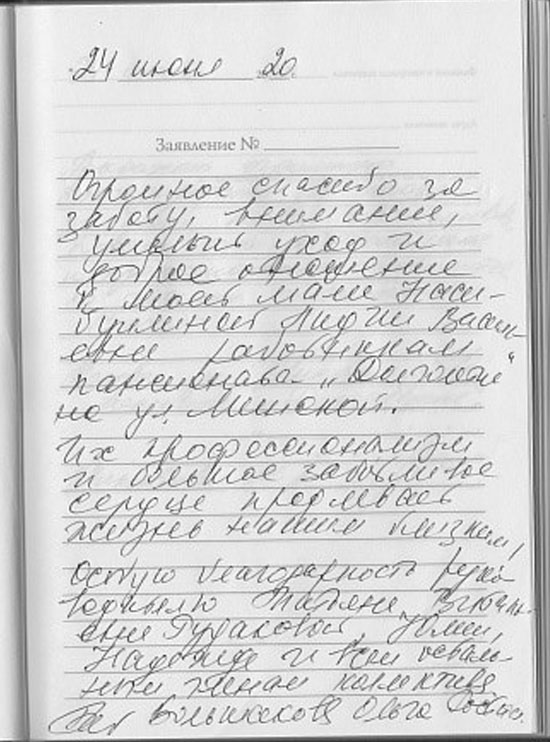 24 июня 20
Заявление №
Огромное спасибо за
заботу, внимание,
уход и
доброе отношение
к моей маме Наси-
буллиной Лидии Василь-
евне работникам
пансионата „Долголетие“
на ул. Минской.
Их профессионализм
и большое заботливое
сердце продлевает
жизнь нашим близким,
Особую благодарность руко
водителю Татьяне Виталь-
евне Гудаковой, Юлии,
Надежде и всем осталь-
ным членам коллектива
Большакова Ольга